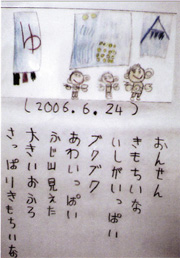 ゆ
(2006.6.24)
おんせん
きもちいな
いしがいっぱい
ブクブク
あわいっぱい
ふじ山見えた
大きいおふろ
さっぱりきもちいな